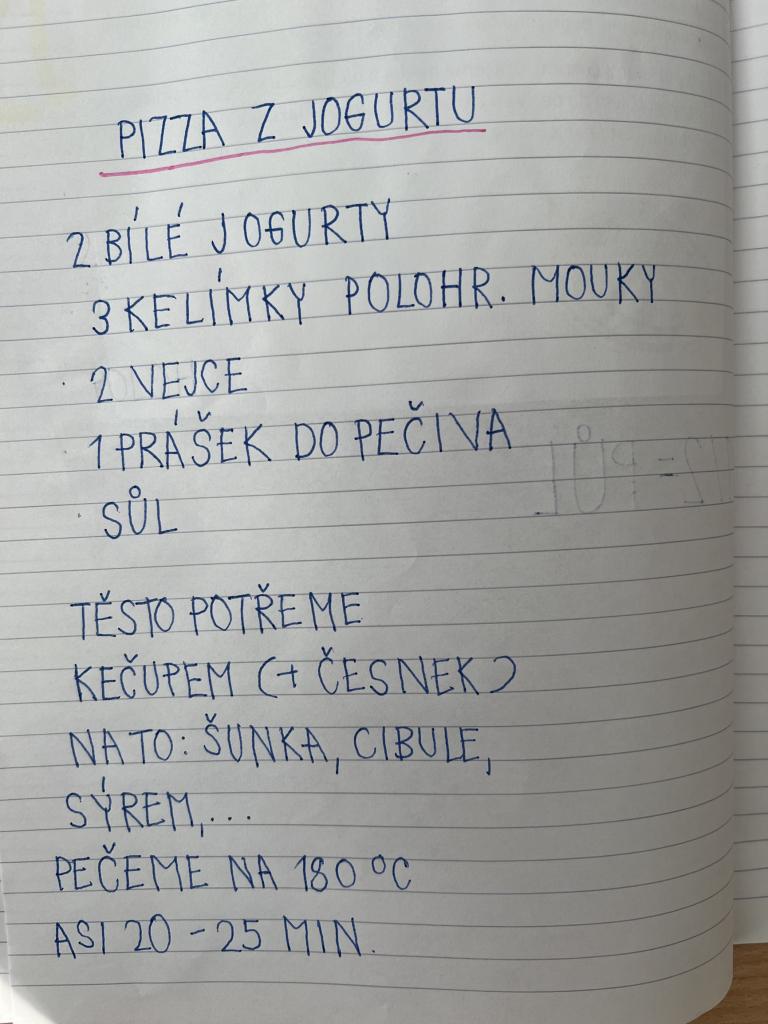 PIZZA Z JOGURTU
2 BÍLÉ JOGURTY
3 KELÍMKY POLOHR. MOUKY
2 VEJCE
1 PRÁŠEK DO PEČIVA
SŮL
TĚSTO POTŘEME
KEČUPEM (+ ČESNEK)
NA TO: ŠUNKA, CIBULE,
SÝREM,...
PEČEME NA 180 °C
ASI 20 - 25 MIN.